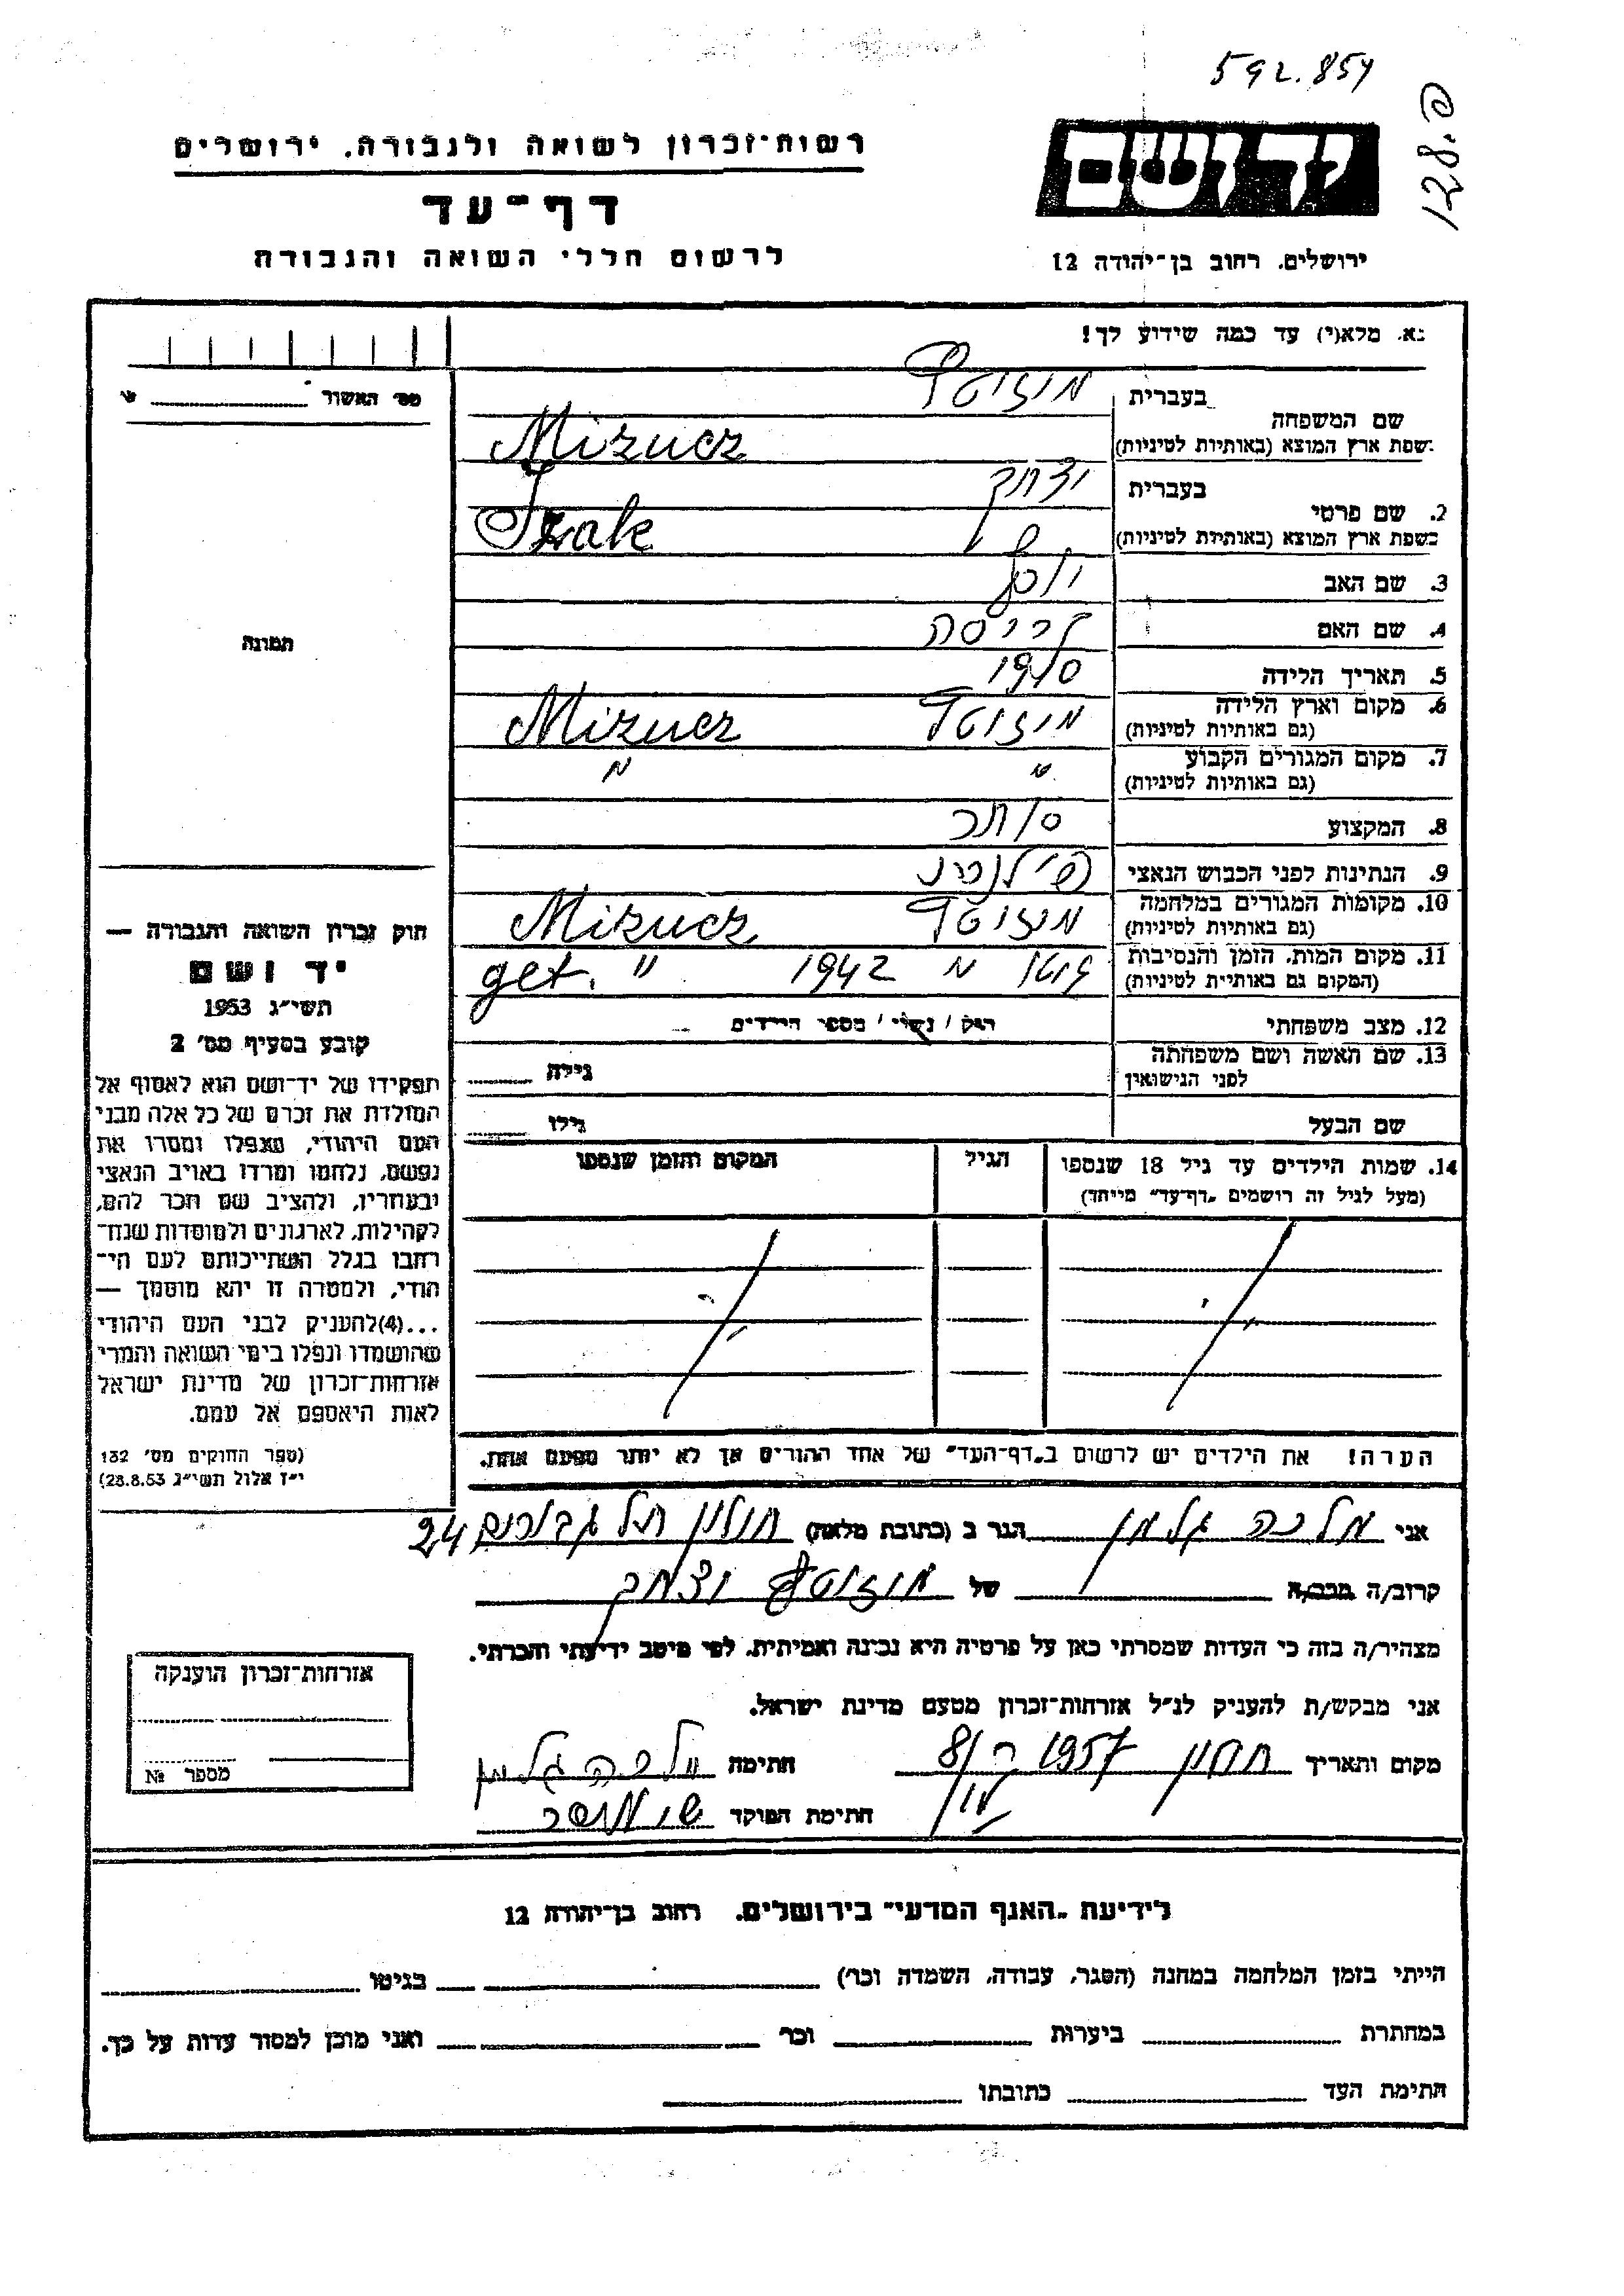 592.854
128.פ
רשות־זכרון לשואה ולגבורה. ירושלים
דף־עד
לרשום חללי השואה והגבורה
יד ושם
ירושלים, רחוב בן־יהודה 12
נא. מלא(י) עד כמה שידוע לך!
מס׳ האשור
שם המשפחה
בעברית
מיזוטש
בשפת ארץ המוצא (באותיות לטיניות)
Mizucz
2. שם פרטי
בעברית
יצחק
בשפת ארץ המוצא (באותיות לטיניות)
Izak
3. שם האב
יוסף
4. שם האם
5. תאריך הלידה
1910
6. מקום וארץ הלידה
(גם באותיות לטיניות)
מיזוטש Mizucz
7. מקום המגורים הקבוע
(גם באותיות לטיניות)
״ ״
8. המקצוע
סוחר
9. הנתינות לפני הכבוש הנאצי
10. מקומות המגורים במלחמה
(גם באותיות לטיניות)
מיזוטש Mizucz
11. מקום המות, הזמן והנסיבות
(המקום גם באותיות לטיניות)
גיטו מ 1942 get. ״
12. מצב משפחתי
רוק / נשוי / מספר הילדים
13. שם האשה ושם משפחתה
לפני הנישואין
גילה
שם הבעל
גילו
14. שמות הילדים עד גיל 18 שנספו
(מעל לגיל זה רושמים „דף־עד״ מיוחד)
הגיל
המקום והזמן שנספו
הערה! את הילדים יש לרשום ב„דף־העד״ של אחד ההורים אך לא יותר מפעם אחת.
תמונה
חוק זכרון השואה והגבורה —
יד ושם
תשי״ג 1953
קובע בסעיף מס׳ 2
תפקידו של יד־ושם הוא לאסוף אל
המולדת את זכרם של כל אלה מבני
העם היהודי, שנפלו ומסרו את
נפשם, נלחמו ומרדו באויב הנאצי
ובעוזריו, ולהציב שם וזכר להם,
לקהילות, לארגונים ולמוסדות שנח־
רבו בגלל השתייכותם לעם הי־
הודי, ולמטרה זו יהא מוסמך —
...(4)להעניק לבני העם היהודי
שהושמדו ונפלו בימי השואה והמרי
אזרחות־זכרון של מדינת ישראל
לאות היאספם אל עמם.
(ספר החוקים מס׳ 132
י״ז אלול תשי״ג 28.8.53)
אני מלכה גלמן הגר ב (כתובת מלאה) חולון תל גבורים 24
קרוב/ה מכב/ה של מיזוטש יצחק
מצהיר/ה בזה כי העדות שמסרתי כאן על פרטיה היא נכונה ואמיתית, לפי מיטב ידיעתי והכרתי.
אני מבקש/ת להעניק לנ״ל אזרחות־זכרון מטעם מדינת ישראל.
מקום ותאריך חולון 1957 חתימה מלכה גלמן
חתימת הפוקד
אזרחות־זכרון הוענקה
מספר №
לידיעת „האגף המדעי״ בירושלים. רחוב בן־יהודה 12
הייתי בזמן המלחמה במחנה (הסגר, עבודה, השמדה וכו׳) בגיטו
במחתרת ביערות וכו׳ ואני מוכן למסור עדות על כך.
חתימת העד כתובתו